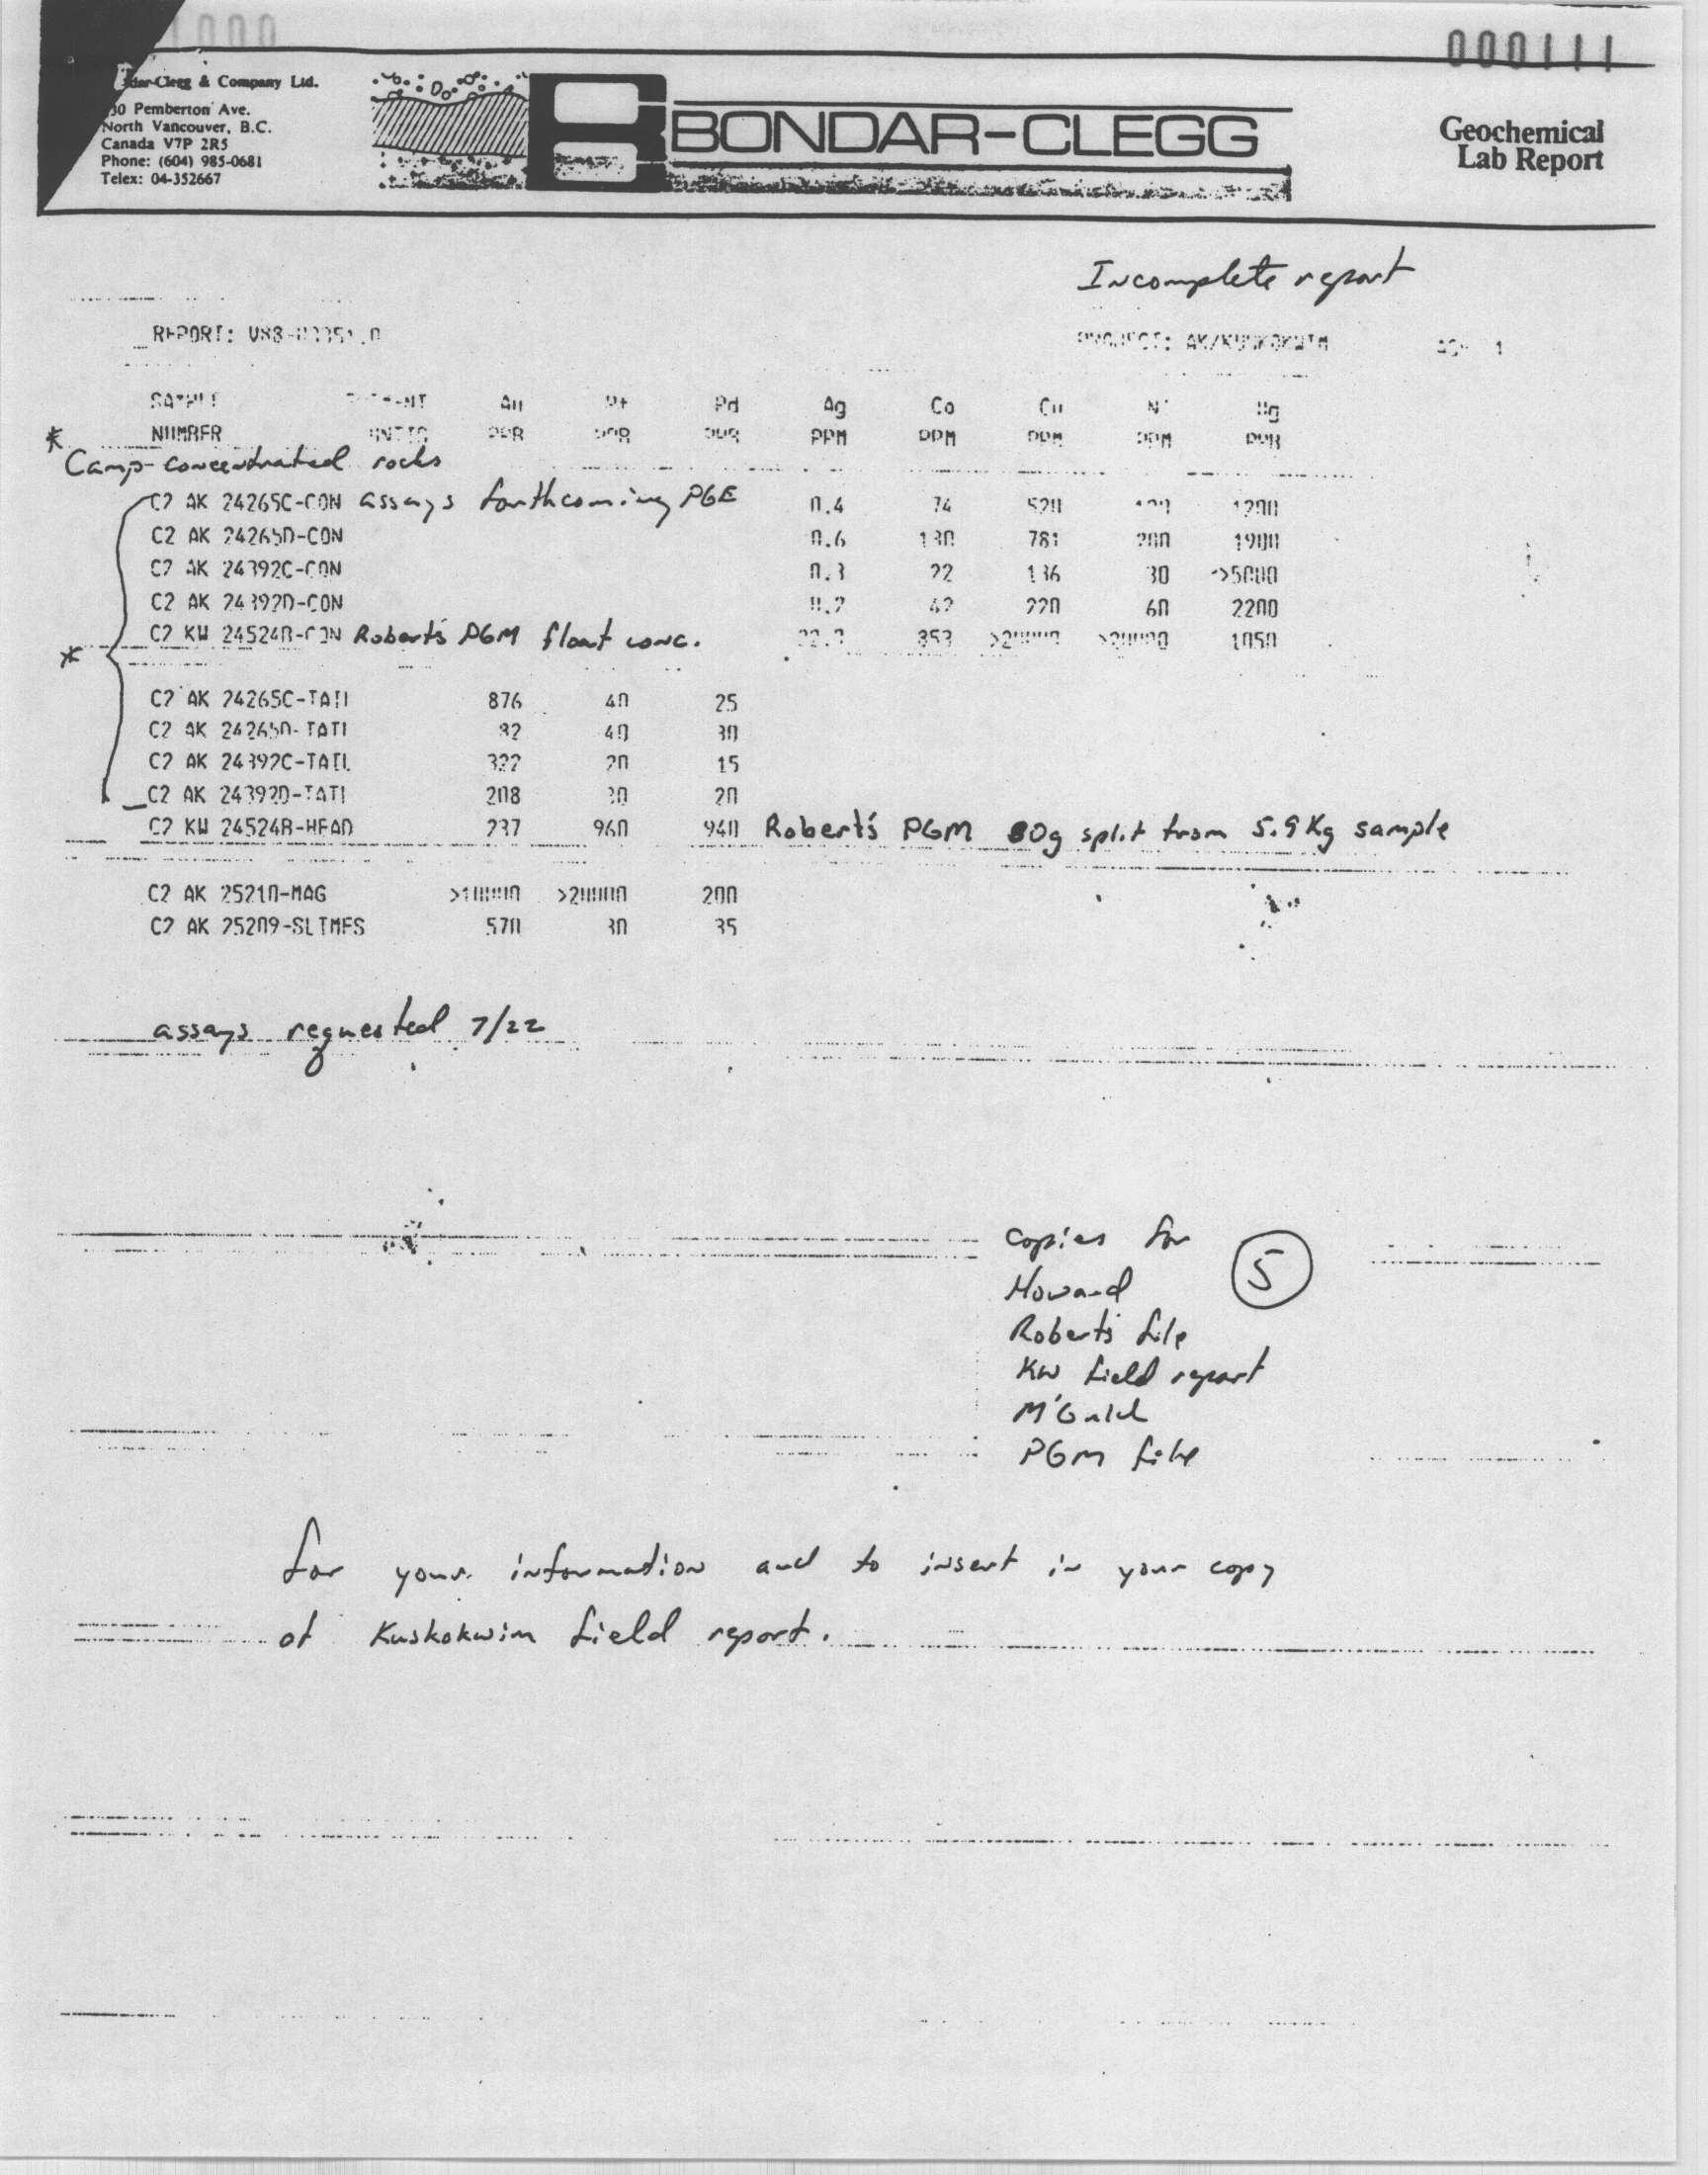 000
000111
& Company Ltd.
Pemberton Ave.
North Vancouver, B.C.
Canada V7P 2R5
Phone: (604) 985-0681
Telex: 04-352667
BONDAR-CLEGG
Geochemical
Lab Report
Incomplete report
REPORT: V88- PROJECT: AK/KUSKOKWIM 1
SAMPLE Au Pt Pd Ag Co Cu Ni Hg
* NUMBER UNITS PPB PPB PPB PPM PPM PPM PPM PPB
Camp-concentrated rocks
C2 AK 24265C-CON assays forthcoming PGE 0.4 74 520 1200
C2 AK 24265D-CON 0.6 130 781 200 1900
C2 AK 24392C-CON 0.3 22 136 30 >5000
C2 AK 24392D-CON 0.2 42 220 60 2200
C2 KW 24524B-CON Robert's PGM float conc. 353 >20000 >20000 1050
*
C2 AK 24265C-TAIL 876 40 25
C2 AK 24265D-TAIL 40 30
C2 AK 24392C-TAIL 322 20 15
C2 AK 24392D-TAIL 208 30 20
C2 KW 24524B-HEAD 237 960 940 Robert's PGM 80g split from 5.9 Kg sample
C2 AK 25210-MAG >10000 >20000 200
C2 AK 25209-SLIMES 570 30 35
assays requested 7/22
copies for
Howard 5
Robert's file
KW field report
PGM file
for your information and to insert in your copy
of Kuskokwim field report.